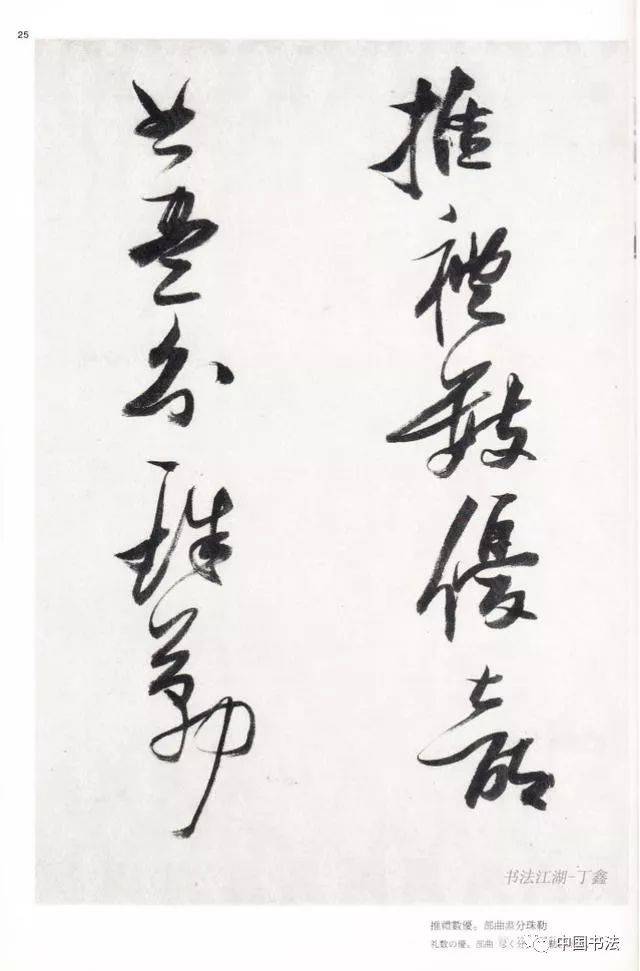 25
推禮數優部
曲盡分珠勒
书法江湖-丁鑫
推禮數優。部曲盡分珠勒
礼数の優、部曲 尽く分
中国书法